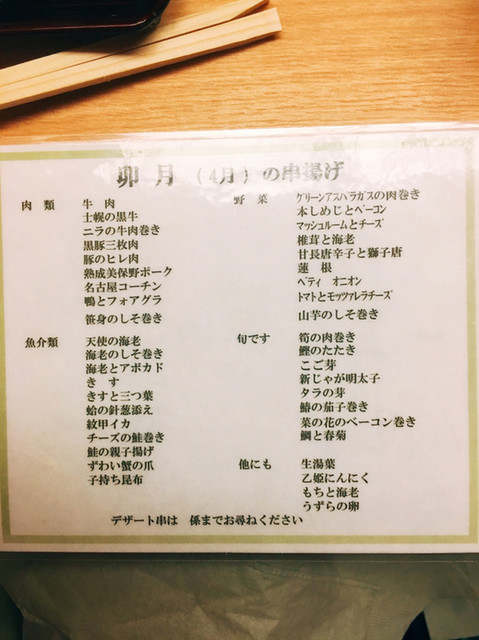 卯月（4月）の串揚げ
肉類
牛肉
士幌の黒牛
ニラの牛肉巻き
黒豚三枚肉
豚のヒレ肉
熟成美保野ポーク
名古屋コーチン
鴨とフォアグラ
笹身のしそ巻き
魚介類
天使の海老
海老のしそ巻き
海老とアボカド
きす
きすと三つ葉
蛤の針葱添え
紋甲イカ
チーズの鮭巻き
鮭の親子揚げ
ずわい蟹の爪
子持ち昆布
野菜
グリーンアスパラガスの肉巻き
本しめじとベーコン
マッシュルームとチーズ
椎茸と海老
甘長唐辛子と獅子唐
蓮根
ペティ オニオン
トマトとモッツァレラチーズ
山芋のしそ巻き
旬です
筍の肉巻き
鰹のたたき
こご芽
新じゃが明太子
タラの芽
鰆の茄子巻き
菜の花のベーコン巻き
鯛と春菊
他にも
生湯葉
乙姫にんにく
もちと海老
うずらの卵
デザート串は 係までお尋ねください